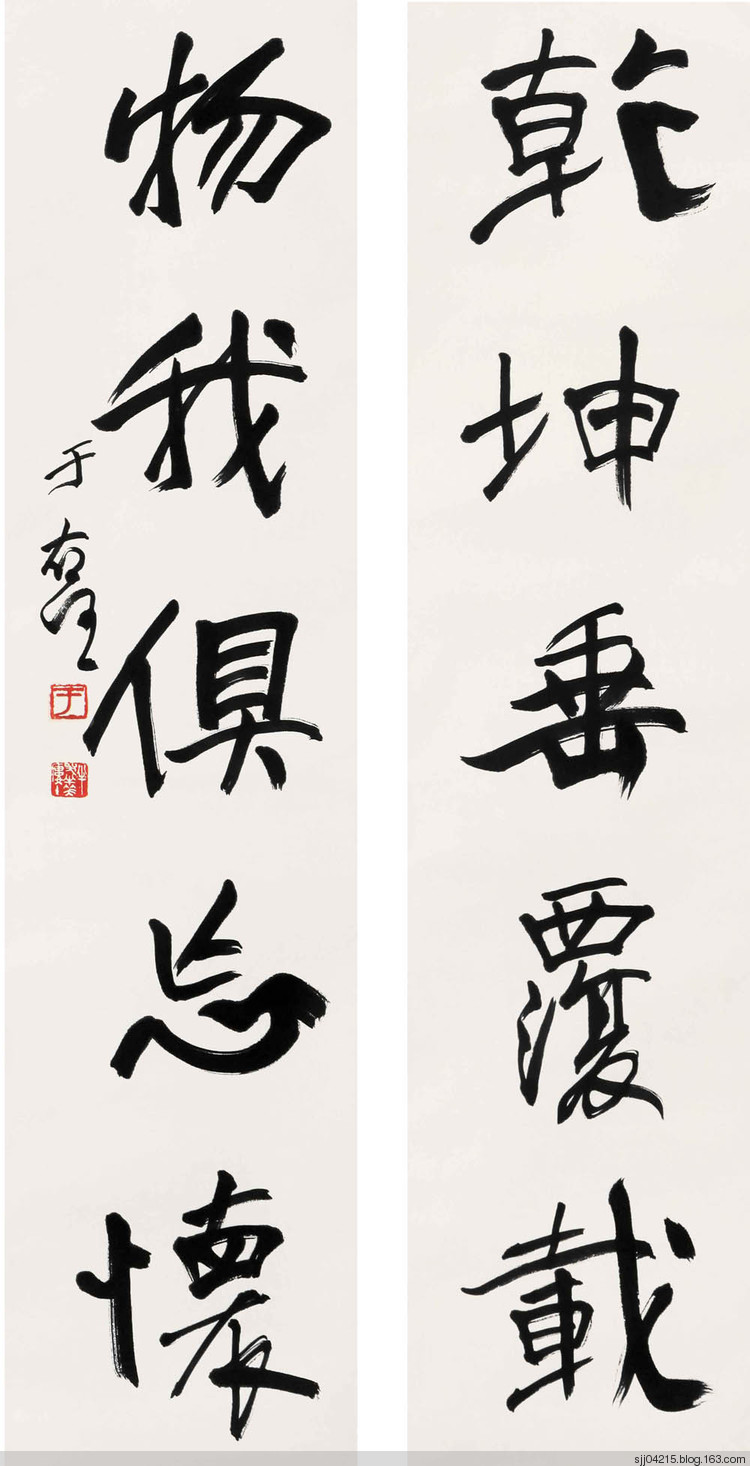 乾坤垂覆載
物我俱忘懷
于右任
sjj04215.blog.163.com